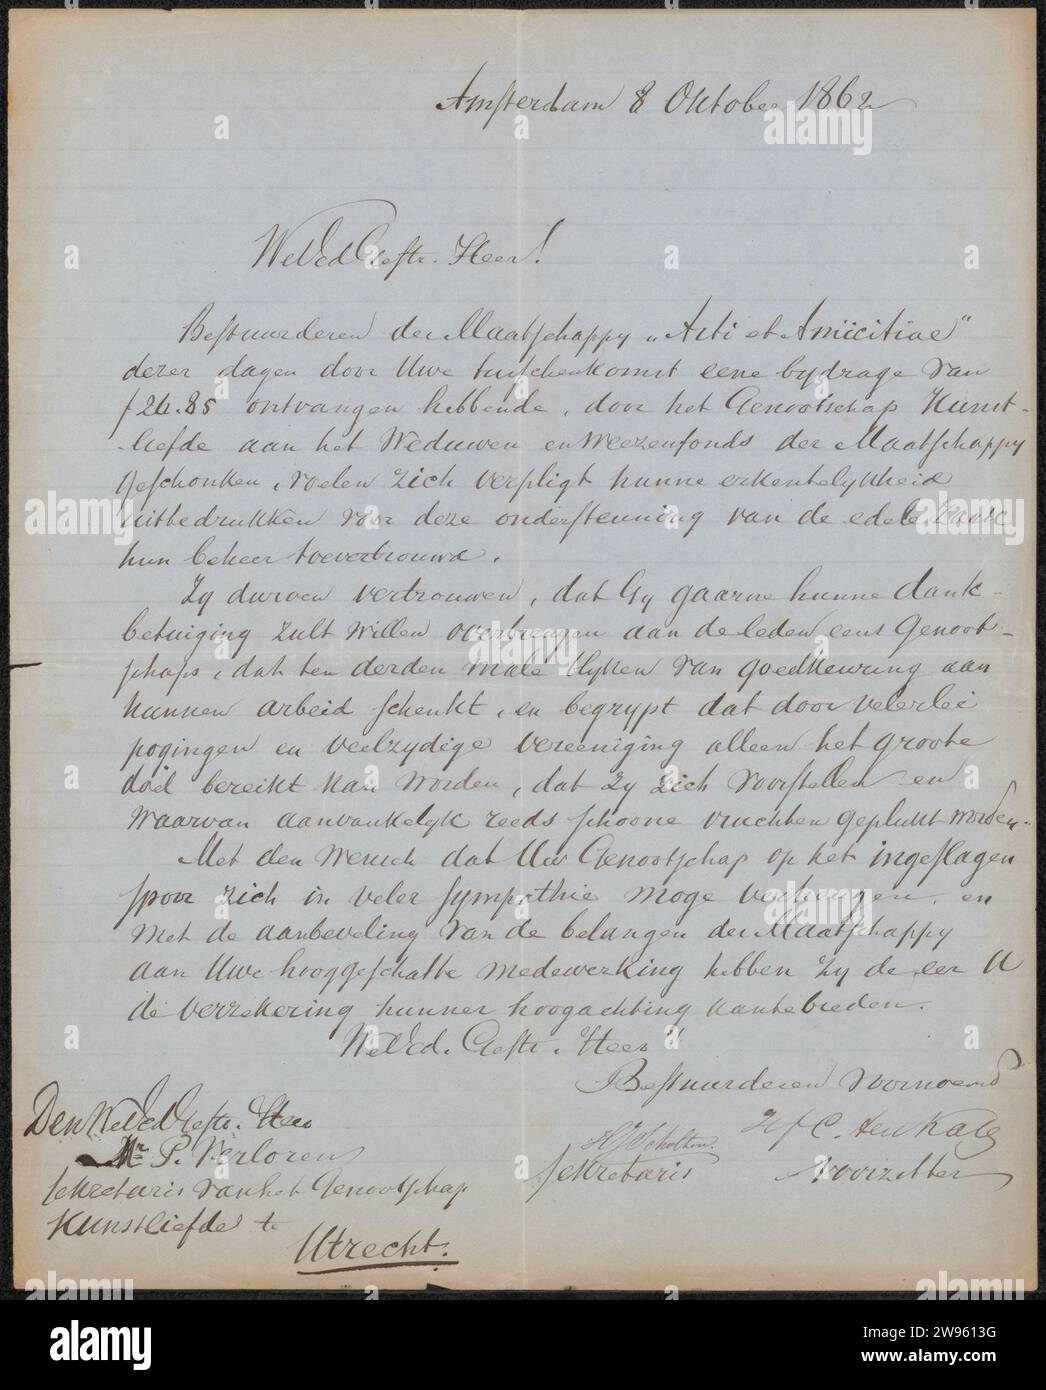 Amsterdam 8 Oktober 1862
WelEd Gestr. Heer!
Bestuurderen der Maatschappy „Arti et Amicitiae"
dezer dagen door Uwe tusschenkomst eene bydrage van
f26.85 ontvangen hebbende, door het Genootschap Kunst-
-liefde aan het Weduwen en Weezenfonds der Maatschappy
geschonken, voelen zich verpligt hunne erkentelykheid
uittedrukken voor deze ondersteuning van de edele zaak
hun beheer toevertrouwd.
Zy durven vertrouwen, dat Gy gaarne hunne dank-
betuiging zult willen overbrengen aan de leden eens Genoot-
schaps, dat ten derden male blyken van goedkeuring aan
hunnen arbeid schenkt, en begrypt dat door velerlei
pogingen en veelzydige vereeniging alleen het groote
doel bereikt kan worden, dat zy zich voorstellen en
waarvan aanvankelyk reeds schoone vruchten geplukt worden.
Met den wensch dat Uw Genootschap op het ingeslagen
spoor zich in veler sympathie moge verheugen, en
met de aanbeveling van de belangen der Maatschappy
aan Uwe hooggeschatte medewerking hebben zy de eer U
de verzekering hunner hoogachting aantebieden.
WelEd. Gestr. Heer!
Bestuurderen voornoemd
Den WelEd Gestr. Heer
Mr P. Verloren
sekretaris van het Genootschap
Kunstliefde te
Utrecht.
H J Scholten
sekretaris
H F C. ten Kate
Voorzitter
alamy
a
2W9613G
alamy
Image ID: 2W9613G
www.alamy.com